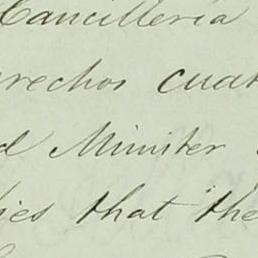 Cancilleria
rechos cuat
d Minister
ies that "the